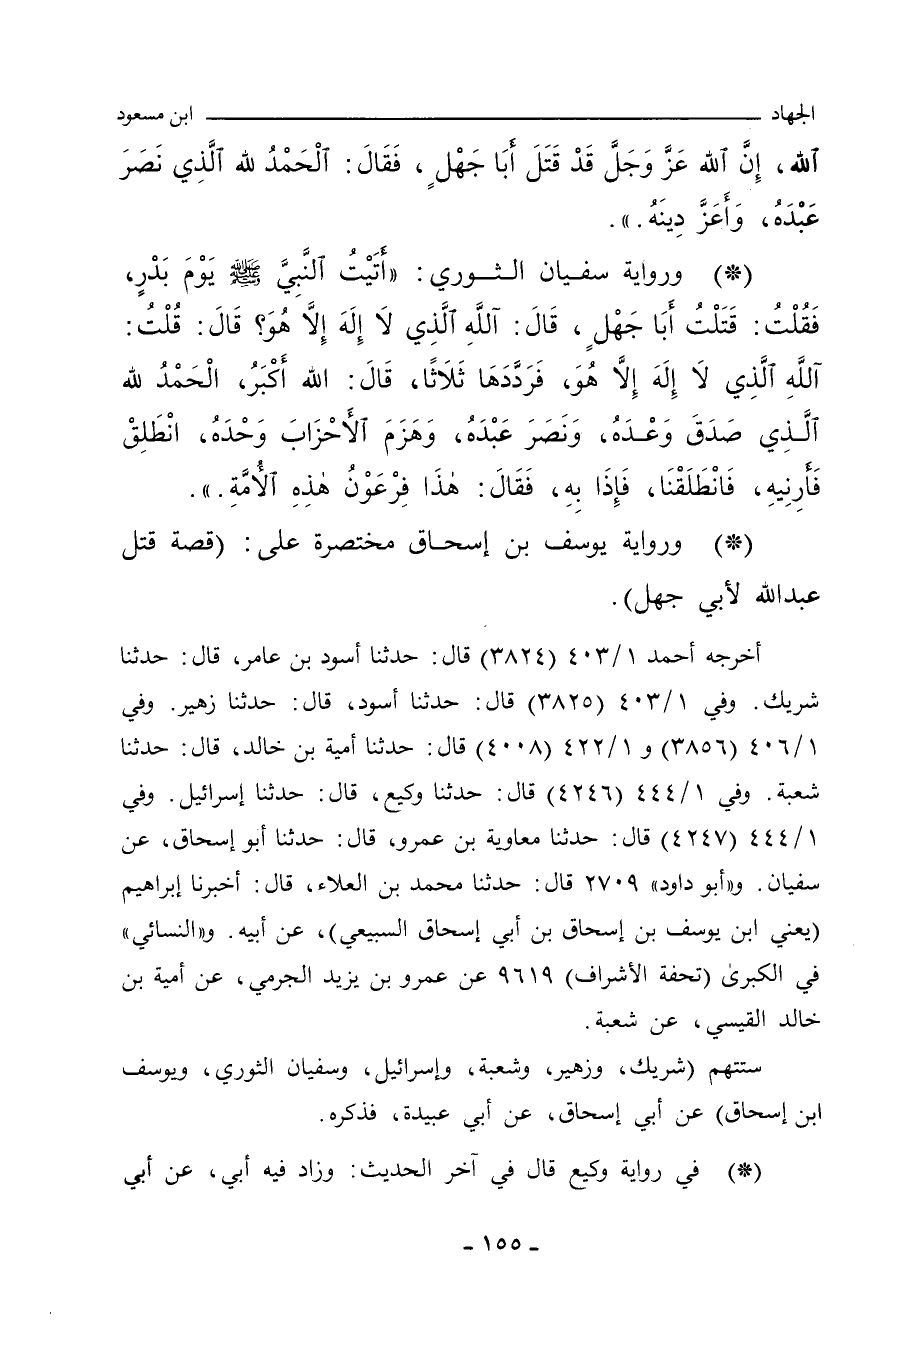 الجهاد ابن مسعود
ٱلله، إِنَّ ٱلله عَزَّ وَجَلَّ قَدْ قَتَلَ أَبَا جَهْلٍ، فَقَالَ: ٱلْحَمْدُ لله ٱلَّذِي نَصَرَ
عَبْدَهُ، وَأَعَزَّ دِينَهُ.».
(*) ورواية سفيان الثوري: «أَتَيْتُ ٱلنَّبِيَّ ﷺ يَوْمَ بَدْرٍ،
فَقُلْتُ: قَتَلْتُ أَبَا جَهْلٍ، قَالَ: آللَّهِ ٱلَّذِي لَا إِلَهَ إِلَّا هُوَ؟ قَالَ: قُلْتُ:
آللَّهِ ٱلَّذِي لَا إِلَهَ إِلَّا هُوَ، فَرَدَّدَهَا ثَلَاثًا، قَالَ: الله أَكْبَرُ، الْحَمْدُ لله
ٱلَّذِي صَدَقَ وَعْدَهُ، وَنَصَرَ عَبْدَهُ، وَهَزَمَ ٱلأَحْزَابَ وَحْدَهُ، انْطَلِقْ
فَأَرِنِيهِ، فَانْطَلَقْنَا، فَإِذَا بِهِ، فَقَالَ: هٰذَا فِرْعَوْنُ هٰذِهِ ٱلأُمَّةِ.».
(*) ورواية يوسف بن إسحاق مختصرة على: (قصة قتل
عبدالله لأبي جهل).
أخرجه أحمد ٤٠٣/١ (٣٨٢٤) قال: حدثنا أسود بن عامر، قال: حدثنا
شريك. وفي ٤٠٣/١ (٣٨٢٥) قال: حدثنا أسود، قال: حدثنا زهير. وفي
٤٠٦/١ (٣٨٥٦) و ٤٢٢/١ (٤٠٠٨) قال: حدثنا أمية بن خالد، قال: حدثنا
شعبة. وفي ٤٤٤/١ (٤٢٤٦) قال: حدثنا وكيع، قال: حدثنا إسرائيل. وفي
٤٤٤/١ (٤٢٤٧) قال: حدثنا معاوية بن عمرو، قال: حدثنا أبو إسحاق، عن
سفيان. و«أبو داود» ٢٧٠٩ قال: حدثنا محمد بن العلاء، قال: أخبرنا إبراهيم
(يعني ابن يوسف بن إسحاق بن أبي إسحاق السبيعي)، عن أبيه. و«النسائي»
في الكبرىٰ (تحفة الأشراف) ٩٦١٩ عن عمرو بن يزيد الجرمي، عن أمية بن
خالد القيسي، عن شعبة.
ستتهم (شريك، وزهير، وشعبة، وإسرائيل، وسفيان الثوري، ويوسف
ابن إسحاق) عن أبي إسحاق، عن أبي عبيدة، فذكره.
(*) في رواية وكيع قال في آخر الحديث: وزاد فيه أبي، عن أبي
- ١٥٥ -